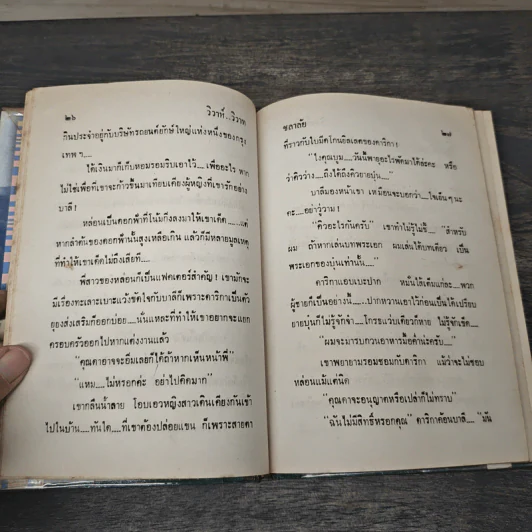 ๒๖
วิวาห์...วิวาท
กินประจำอยู่กับบริษัทรถยนต์ยักษ์ใหญ่แห่งหนึ่งของกรุง
เทพ ฯ....
ได้เงินมาก็เก็บหอมรอมริบเอาไว้ .... เพื่ออะไร หาก
ไม่ใช่เพื่อที่เขาจะก้าวขึ้นมาเทียบเคียงผู้หญิงที่เขารักอย่าง
บาลี !
หล่อนเป็นดอกฟ้าที่โน้มกิ่งลงมาให้เขาเด็ด ........แต่
หากลำต้นของดอกฟ้านั้นสูงเหลือเกิน แล้วก็มีหลายมูลเหตุ
ที่ทำให้เขาเด็ดไม่ถึงเสียที ....
พี่สาวของหล่อนก็เป็นแฟคเตอร์สำคัญ ! เขามักจะ
มีเรื่องทะเลาะเบาะแว้งขัดใจกับบาลีก็เพราะดาริกาเป็นตัว
ยุยงส่งเสริมก็ออกบ่อย .....นั่นแหละที่ทำให้เขาอยากจะแยก
ครอบครัวออกไปหากแต่งงานแล้ว
"คุณดาอาจจะยิ้มเลยก็ได้ถ้าหากเห็นหน้าพี่"
"แหม..... ไม่หรอกค่ะ อย่าไปคิดมาก"
เขากลืนน้ำลาย โอบเอวหญิงสาวเดินเคียงกันเข้า
ไปในบ้าน.....ทันใด.... ที่เขาต้องปล่อยแขน ก็เพราะสายตา
ชลาลัย
๒๗
ที่ราวกับใบมีดโกนยิลเลตของดาริกา !
"ไงคุณบุม..... วันนี้พายุอะไรพัดมาได้ล่ะคะ หรือ
ว่าคิวว่าง.....ถึงได้ถึงคิวยายบุ่น....."
บาลีมองหน้าเขา เหมือนจะบอกว่า.....ใจเย็นๆ นะ
คะ.....อย่าวู่วาม !
"คิวอะไรกันครับ" เขาทำไม่รู้ไม่ชี้ ..... "สำหรับ
ผม ถ้าหากเล่นบทพระเอก ผมเล่นได้บทเดียว เป็น
พระเอกของบุ่นเท่านั้น....."
ดาริกาแอบเบะปาก หมั่นไส้เต็มแก่ละ.....พวก
ผู้ชายก็เป็นอย่างนี้......ปากหวานเอาไว้ก่อนเป็นได้เปรียบ
ยายบุ่นก็ไม่รู้จักจำ..... โกรธแว่บเดียวก็หาย ไม่รู้จักเข็ด.....
"ผมจะมารบกวนอาหารมื้อค่ำนะครับ....."
เขาพยายามรอมชอมกับดาริกา แม้ว่าจะไม่ชอบ
หล่อนแม้แต่นิด
"คุณดาจะอนุญาตหรือเปล่าก็ไม่ทราบ"
"ฉันไม่มีสิทธิ์หรอกคุณ" ดาริกาค้อนบาลี..... "มัน